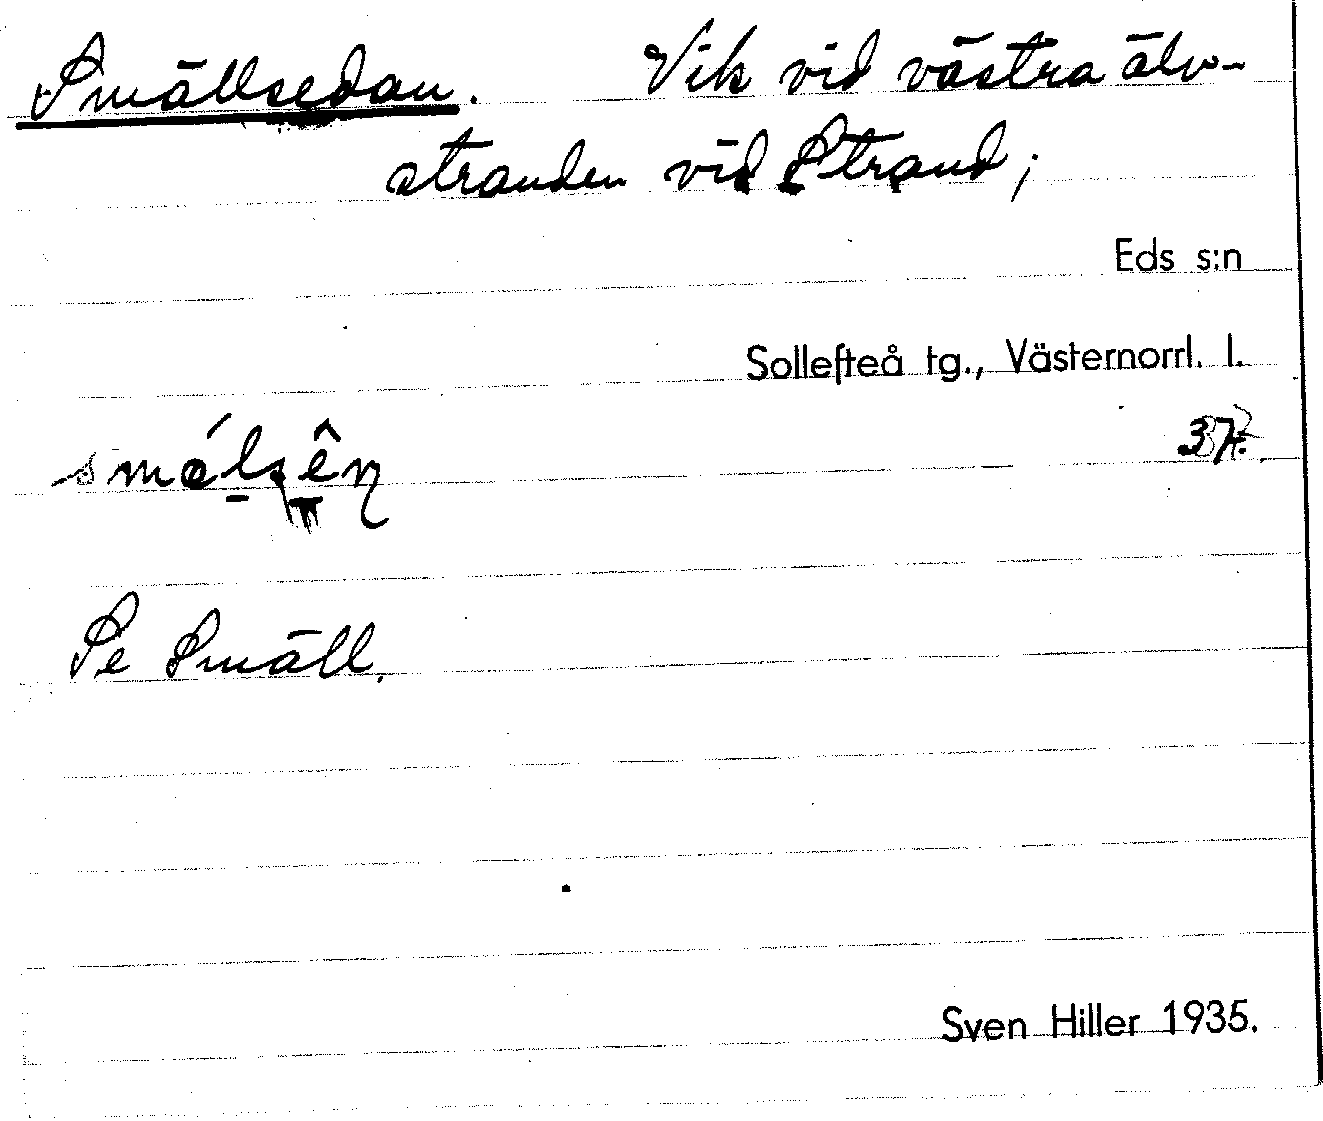 Smällsedan. Vik vid västra älv-
stranden vid Strand;
Eds s:n
Sollefteå tg., Västernorrl. l.
37.
Se Smäll.
Sven Hiller 1935.